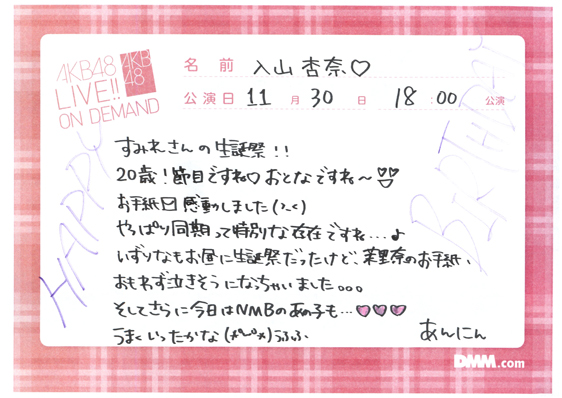 AKB48
LIVE!!
ON DEMAND
AKB
48
名前 入山杏奈♡
公演日 11月30日 18:00公演
HAPPY
BIRTHDAY
すみれさんの生誕祭!!
20歳!節目ですね♡おとなですね〜
お手紙 感動しました(>_<)
やっぱり同期って特別な存在ですね…♪
いずりなもお昼に生誕祭だったけど、茉里奈のお手紙、
おもわず泣きそうになっちゃいました。。。
そしてさらに今日はNMBのあの子も…♡♡♡
うまくいったかな うふふ
あんにん
DMM.com